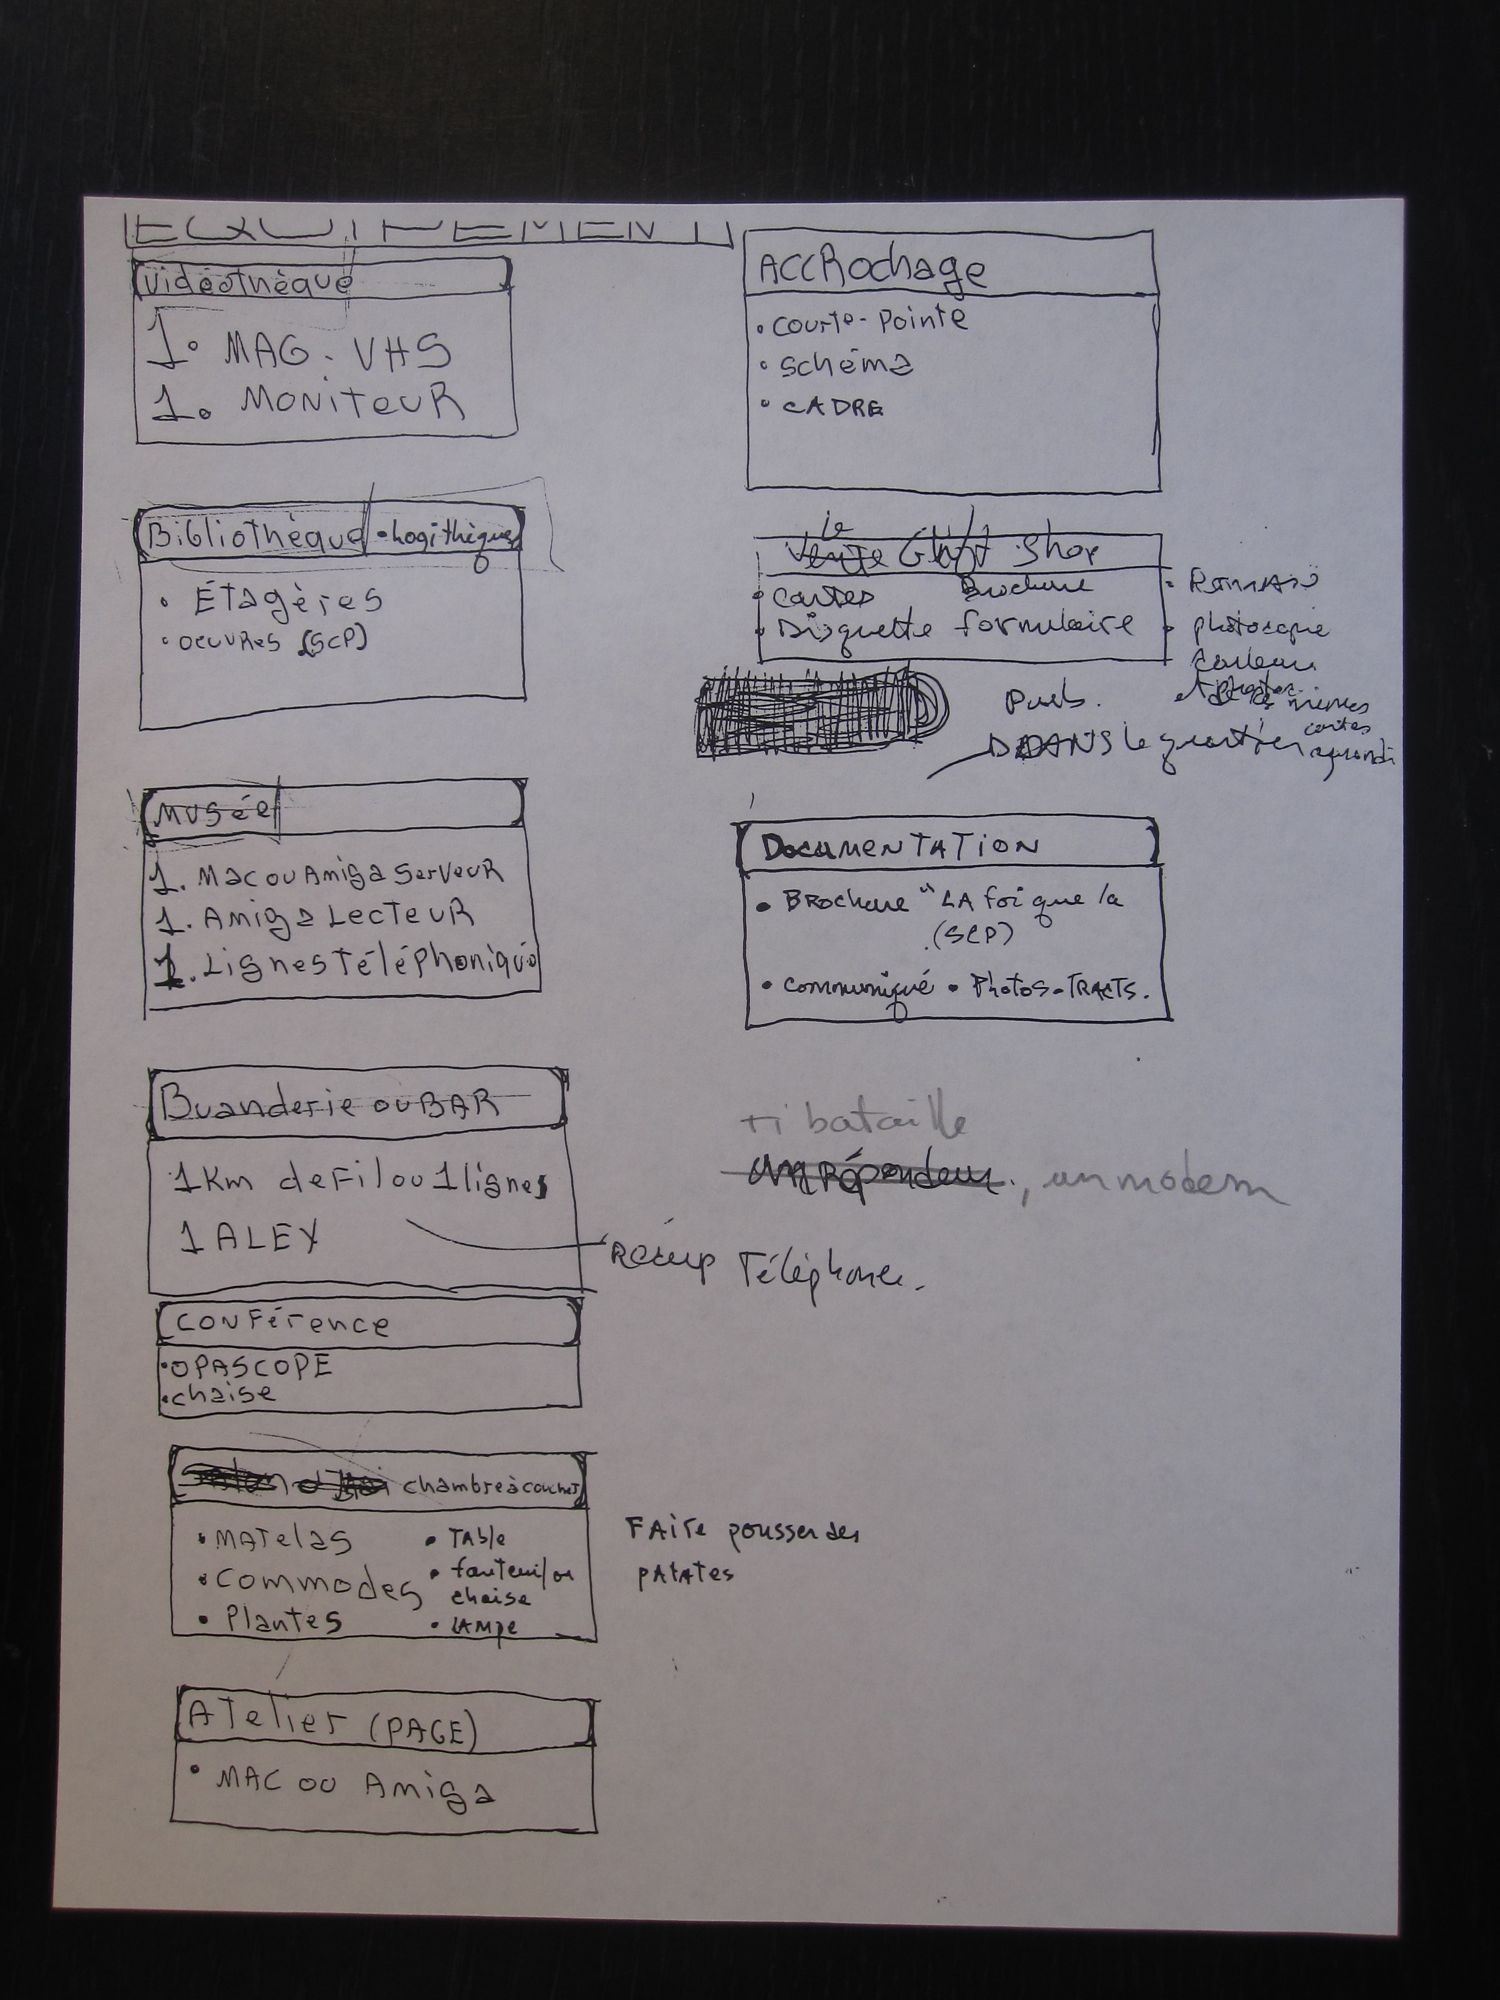 EQUIPEMENT
Vidéothèque
1. MAG. VHS
1. MONITEUR
Bibliothèque • Logithèque
• Étagères
• oeuvres (SCP)
Musée
1. Mac ou Amiga Serveur
1. Amiga Lecteur
1. Lignes Téléphonique
Buanderie ou BAR
1 Km de Fil ou 1 lignes
1 ALEX
Récup Téléphones.
CONFérence
• OPASCOPE
• chaise
chambre à coucher
• MATelas
• Commodes
• Plantes
• TABle
• fauteuil ou
chaise
• LAMpe
FAire pousser des
pAtAtes
Atelier (PAGE)
• MAC ou Amiga
ACCRochage
• Courte-Pointe
• Schéma
• CADRE
le
Vente Shop
• Cartes Brochure
• Disquette formulaire
• Romans
• photocopie
Couleur
mêmes
cartes
Pub.
DANS le quartier
DocuMENTATION
• BRochure "LA foi que la
(SCP)
• Communiqué • Photos • TRACTS.
ti bataille
un Répondeur, un modem